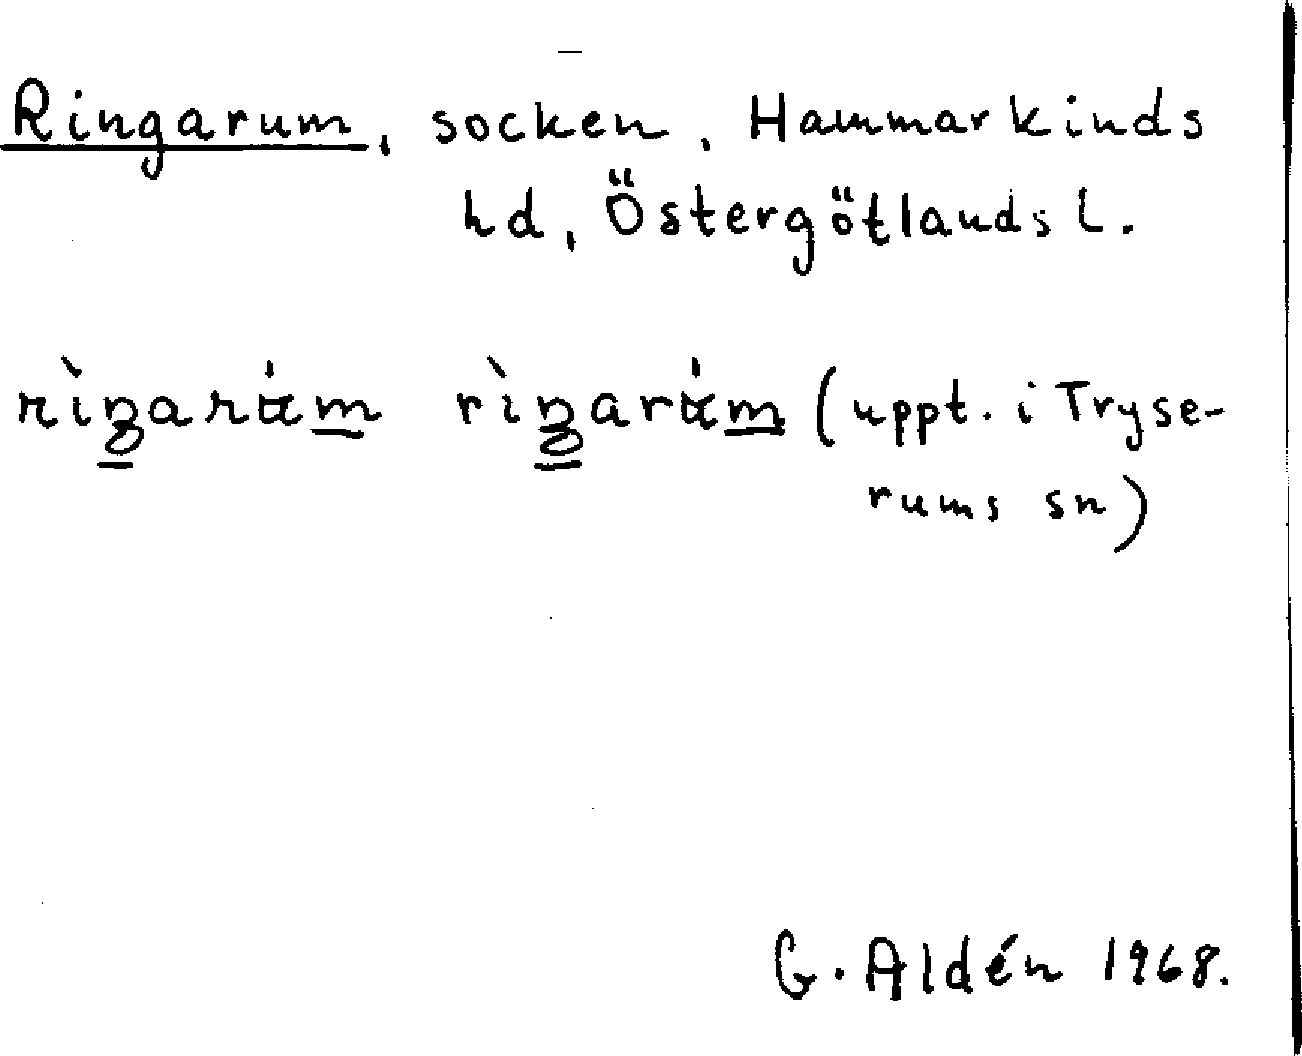 Ringarum, socken, Hammarkinds
hd, Östergötlands l.
rìŋarùm rìŋarùm (uppt. i Tryse-
rums sn)
G. Aldén 1968.